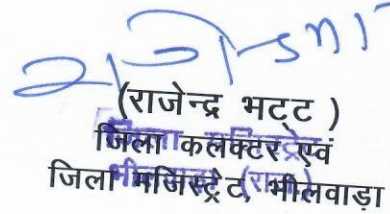 (राजेन्द्र भट्ट )
जिला कलक्टर एवं
जिला मजिस्ट्रेट, भीलवाड़ा